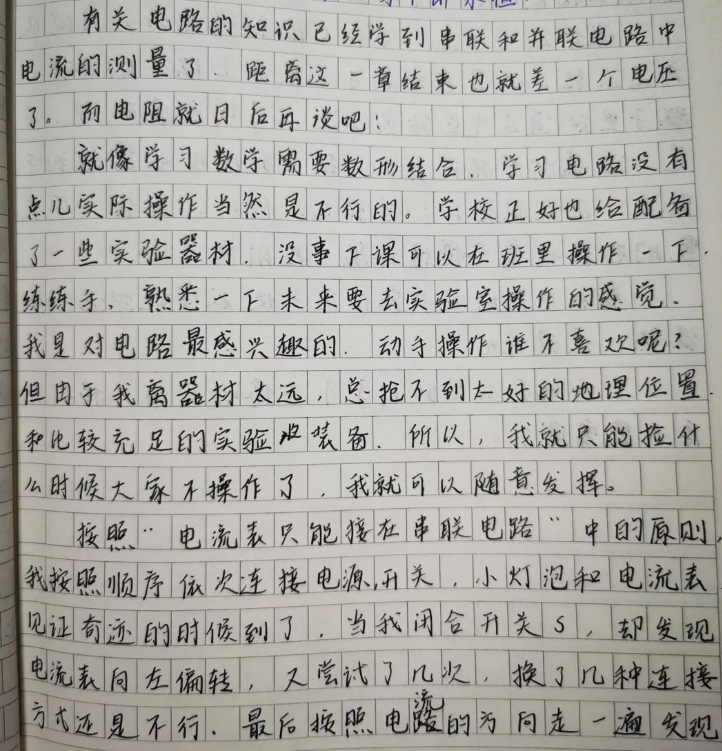 有关电路的知识已经学到串联和并联电路中
电流的测量了.距离这一章结束也就差一个电压
了。而电阻就日后再谈吧!
就像学习数学需要数形结合.学习电路没有
点儿实际操作当然是不行的。学校正好也给配备
了一些实验器材.没事下课可以在班里操作一下.
练练手.熟悉一下未来要去实验室操作的感觉.
我是对电路最感兴趣的.动手操作谁不喜欢呢?
但由于我离器材太远,总抢不到太好的地理位置.
和比较充足的实验装备.所以,我就只能捡什
么时候大家不操作了,我就可以随意发挥。
按照“电流表只能接在串联电路”中的原则,
我按照顺序依次连接电源,开关,小灯泡和电流表
见证奇迹的时候到了.当我闭合开关S,却发现
电流表向左偏转,又尝试了几次,换了几种连接
方式还是不行.最后按照电流的方向走一遍发现